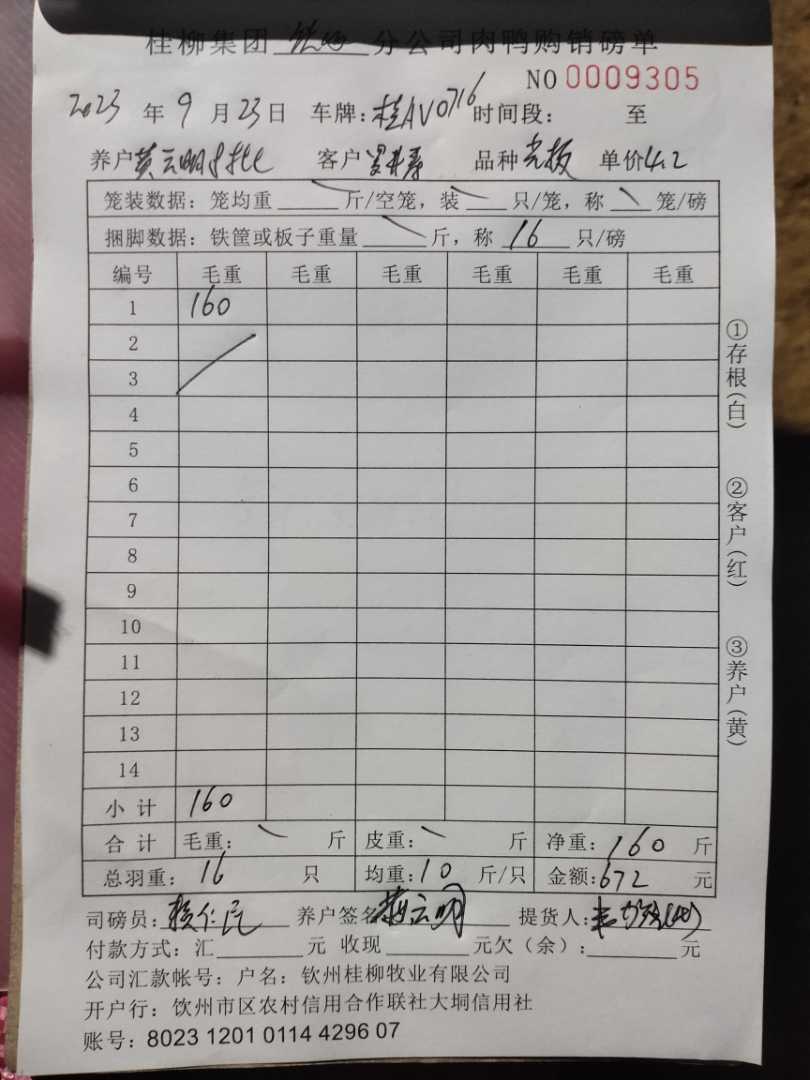 桂柳集团 分公司肉鸭购销磅单
NO 0009305
2023 年 9 月 23 日 车牌: 桂AV0716 时间段: 至
养户 黄云明 8批 客户 品种 光板 单价 4.2
笼装数据: 笼均重 斤/空笼, 装 只/笼, 称 笼/磅
捆脚数据: 铁筐或板子重量 斤, 称 16 只/磅
编号 毛重 毛重 毛重 毛重 毛重 毛重
1 160
2
3
4
5
6
7
8
9
10
11
12
13
14
小 计 160
合 计 毛重: 斤 皮重: 斤 净重: 160 斤
总羽重: 16 只 均重: 10 斤/只 金额: 672 元
司磅员: 养户签名 黄云明 提货人:
付款方式: 汇 元 收现 元欠(余): 元
公司汇款帐号: 户名: 钦州桂柳牧业有限公司
开户行: 饮州市区农村信用合作联社大垌信用社
账号: 8023 1201 0114 4296 07
①存根(白)
②客户(红)
③养户(黄)